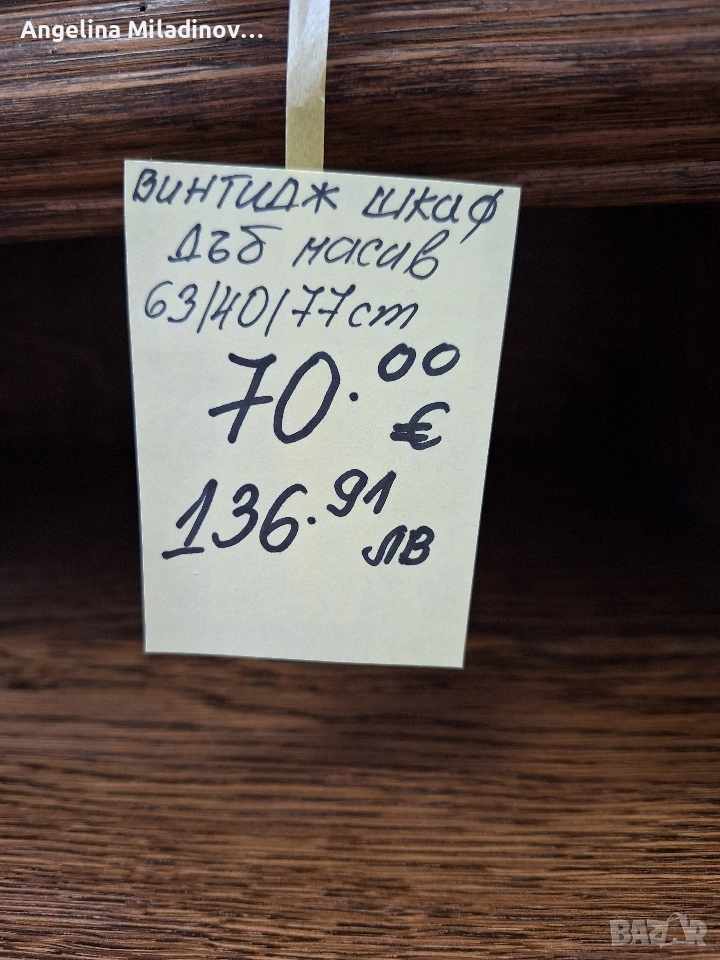 Angelina Miladinov...
ВИНТИДЖ ШКАФ
ДЪБ масив
63/40/77cm
70.00
€
136.91
лв
BAZAR